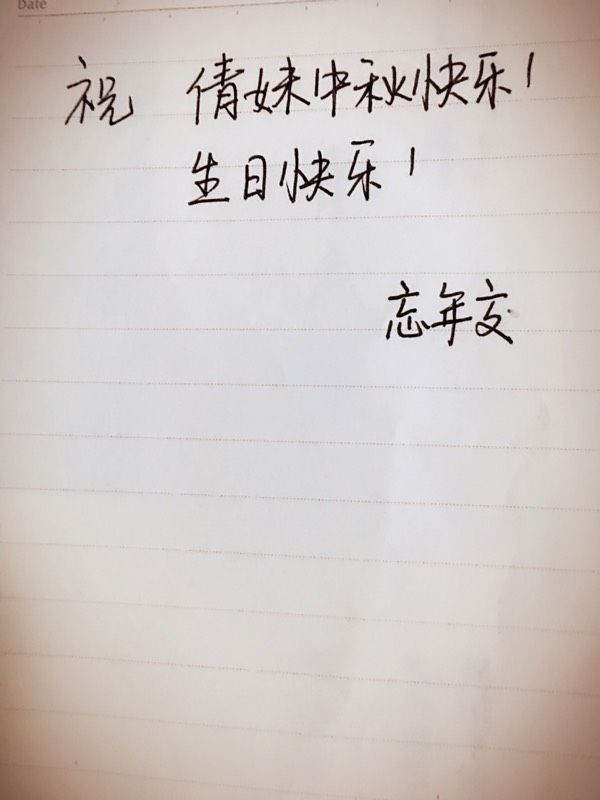 Date
祝 倩妹中秋快乐!
生日快乐!
忘年交